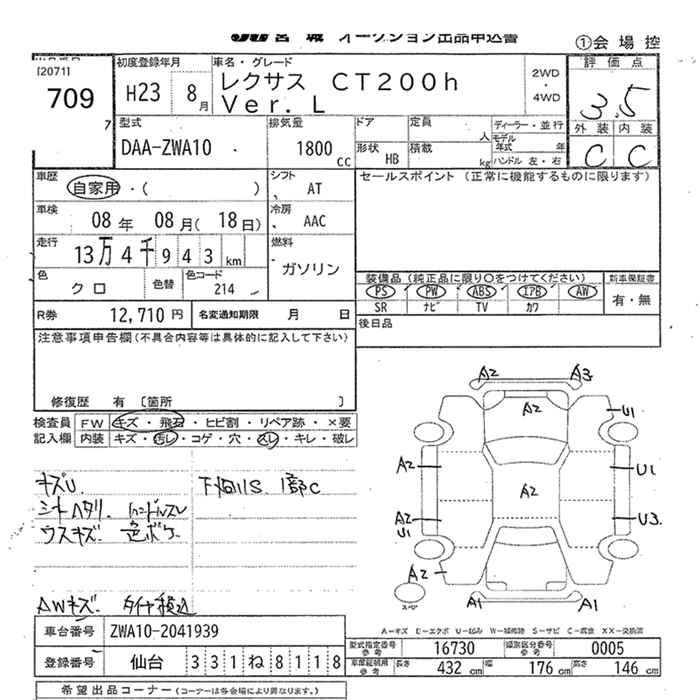 JU 宮城 オークション出品申込書
①会場控
[2071]
709
7
初度登録年月
H23 8月
車名・グレード
レクサス CT200h
Ver. L
2WD
・
4WD
評価点
3.5
外装 内装
C C
型式
DAA-ZWA10
排気量
1800 CC
ドア
定員 人
形状 HB
積載 kg
ディーラー・並行
モデル年式 年
ハンドル 左・右
車歴
自家用・( )
シフト
AT
セールスポイント (正常に機能するものに限ります)
車検
08年 08月( 18日)
冷房
AAC
走行
13万4千943km
燃料
ガソリン
色
クロ
色替
色コード
214
装備品(純正品に限り○をつけてください)
新車保証書
PS PW ABS エアB AW
SR ナビ TV カワ
有・無
R券 12,710円
名変通知期限 月 日
後日品
注意事項申告欄(不具合内容等は具体的に記入して下さい)
修復歴 有 [箇所 ]
検査員記入欄
FW キズ・飛石・ヒビ割・リペア跡・×要
内装 キズ・汚レ・コゲ・穴・スレ・キレ・破レ
キズU
シートヘタリ ハンドルスレ
ウスキズ 色ボケ
AWキズ タイヤ積込
下回りS 1部C
A2 A3
A2
U1
A2 U1
A2
A2 U1 U3
A2
A1 A1
スペア
A=キズ E=エクボ U=凹み W=補修跡 S=サビ C=腐食 XX=交換済
車台番号 ZWA10-2041939
登録番号 仙台 331ね8118
型式指定番号 参考 16730
類別区分番号 参考 0005
車庫証明用 参考 長さ 432 cm 幅 176 cm 高さ 146 cm
希望出品コーナー(コーナーは各会場により異なります。)